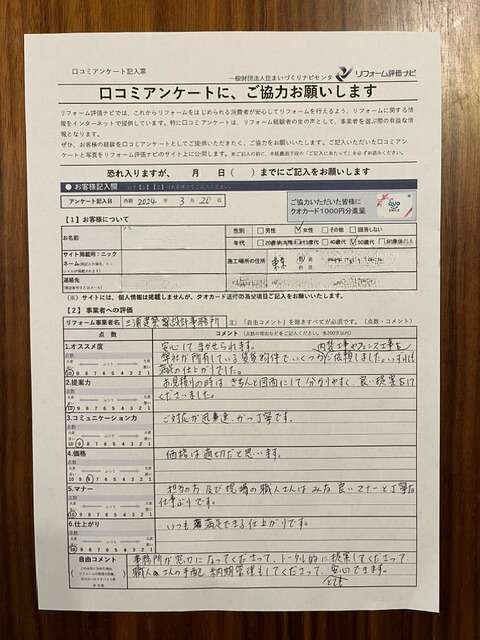 口コミアンケート記入票
一般財団法人住まいづくりナビセンター リフォーム評価ナビ
口コミアンケートに、ご協力お願いします
リフォーム評価ナビでは、これからリフォームをはじめられる消費者が安心してリフォームを行えるよう、リフォームに関する情報
をインターネットで提供しています。特に口コミアンケートは、リフォーム経験者の生の声として、事業者を選ぶ際の有益な情
報となります。
ぜひ、お客様の経験を口コミアンケートとしてご提供いただきたく、ご協力をお願いいたします。ご記入いただいた口コミアン
ケートと写真をリフォーム評価ナビのサイト上に公開します。
恐れ入りますが、 月 日( )までにご記入をお願いします
■お客様記入欄
アンケート記入日 西暦 2024 年 3 月 20 日
ご協力いただいた皆様に
クオカード1000円分進呈
【1】お客様について
お名前
性別 □男性 ☑女性 □その他 □回答しない
年代
サイト掲載用:ニック
ネーム
施工場所の住所 東京
連絡先
(※) サイトには、個人情報は掲載しませんが、クオカード送付の為必須項目ご記入をお願いいたします。
【2】事業者への評価
リフォーム事業者名 三浦建築設計事務所
点数 コメント
1.オススメ度
安心してまかせられます。
弊社が所有している賃貸物件で、いくつか依頼しました。いずれも
満足の仕上がりでした。
10 9 8 7 6 5 4 3 2 1
2.提案力
お見積りの時はきちんと図面にして分かりやすく、良い提案をして
くださいました。
10 9 8 7 6 5 4 3 2 1
3.コミュニケーション力
ご対応が迅速、かつ丁寧です。
10 9 8 7 6 5 4 3 2 1
4.価格
価格は適切だと思います。
10 9 8 7 6 5 4 3 2 1
5.マナー
担当の方及び現場の職人さんはみな良いマナーと丁寧な
仕事ぶりです。
10 9 8 7 6 5 4 3 2 1
6.仕上がり
いつも満足できる仕上がりです。
10 9 8 7 6 5 4 3 2 1
自由コメント
事務所が窓口になってくださって、トータル的に提案してくださって、
職人さんの手配、納期管理もしてくださって、とても安心できます。